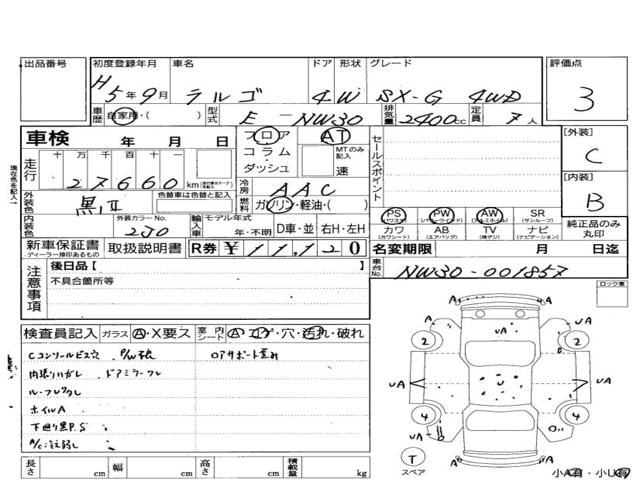 出品番号
初度登録年月 車名 ドア 形状 グレード 評価点
H5年9月 ラルゴ 4W SX-G 4WD 3
車歴 自家用・( ) 型式 E-NW30 排気量 2400cc 定員 7人
車検 年 月 日 フロア AT
コラム・ダッシュ MTのみ記入 速
セールスポイント
[外装] C
[内装] B
現在色を記入
走行 十万千百十一
27660 km
冷房 AAC
外装色 黒II 色替車は色替と記入
燃料 ガソリン・軽油・( )
内装色 外装カラーNo. 2J0
輸入車 モデル年式 年・不明 D車・並 右H・左H
PS PW AW SR
(パワステ) (パワーウインド) (アルミホイル) (サンルーフ)
カワ AB TV ナビ
(カワシート) (エアバッグ) (液テレビ) (ナビゲーション)
純正品のみ丸印
新車保証書 取扱説明書 R券 ¥11,120
ディーラー捺印あるもの
名変期限 月 日迄
車台No. NW30-001857
注意事項 後日品【 】
不具合箇所等
ロック車
検査員記入 ガラス A・X要ス 室内シート A・コゲ・穴・汚れ・破れ
Cコンソールビス穴
内張りハガレ ドアミラーワレ
ホイルA
A U UA
2 2
UA U UA
4 4
UA U
T
スペア
A A
小A有・小U有
長さ cm 幅 cm 高さ cm 積載量 kg